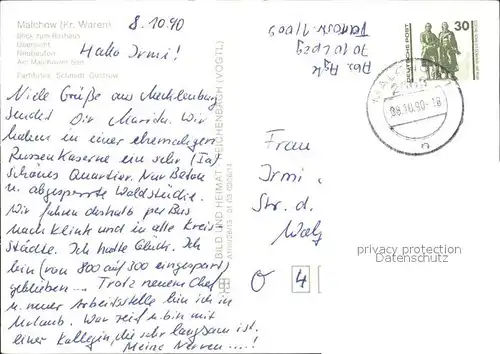 Malchow (Kr. Waren)
Blick zum Rathaus
Übersicht
Neubauten
Am Malchower See
Farbfotos: Schmidt, Güstrow
8.10.90
Hallo Irmi!
Viele Grüße aus Mecklenburg
sendet Dir Marida. Wir
haben in einer ehemaligen
Russenkaserne ein sehr (Ia)
schönes Quartier. Nur Beton
u. abgesperrte Waldstücke.
Wir fahren deshalb per Bus
nach Klink und in alte Kreis-
städte. Ich hatte Glück. Ich
bin (von 800 auf 300 eingespart)
geblieben... Trotz neuem Chef
u. neuer Arbeitsstelle bin ich in
Urlaub. War seid u. bin mit
einer Kollegin, die sehr langsam ist.
Meine Nerven....!
BILD UND HEIMAT REICHENBACH (VOGTL)
Abs.
DEUTSCHE POST
30
MALCHOW
08.10.90-18
a
Frau
Irmi
Str. d.
O 4
privacy protection
Datenschutz